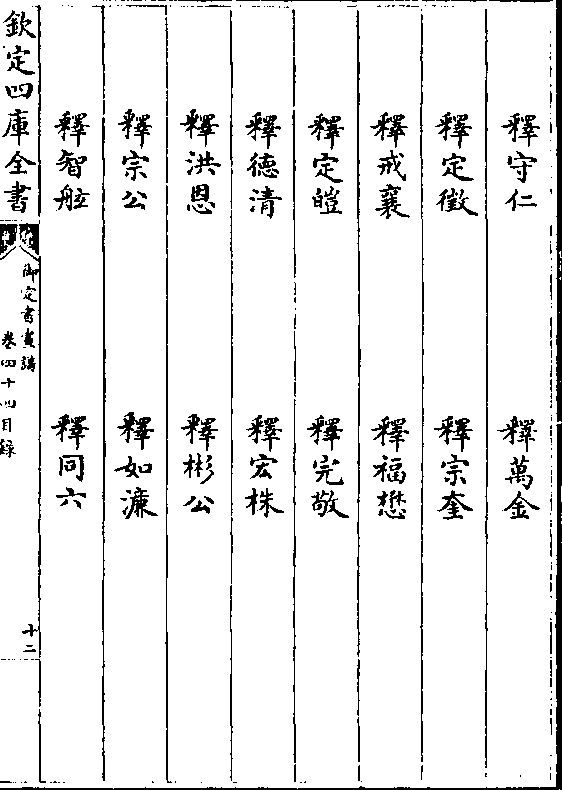 釋守仁　釋萬金
釋定徵　釋宗奎
釋戒襄　釋福懋
釋定皚　釋完敬
釋德清　釋宏株
釋洪恩　釋彬公
釋宗公　釋如濂
釋智舷　釋同六
欽定四庫全書
御定書畫譜
卷四十四目錄
十二